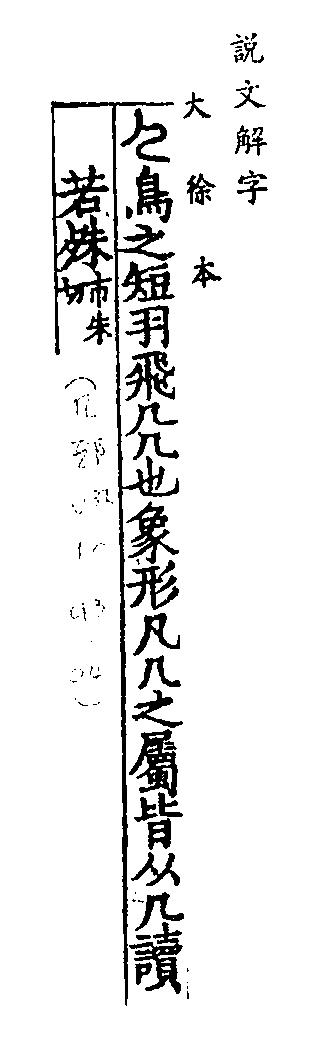 説文解字
大徐本
𠘧鳥之短羽飛几几也象形凡几之屬皆从几讀
若殊市朱切